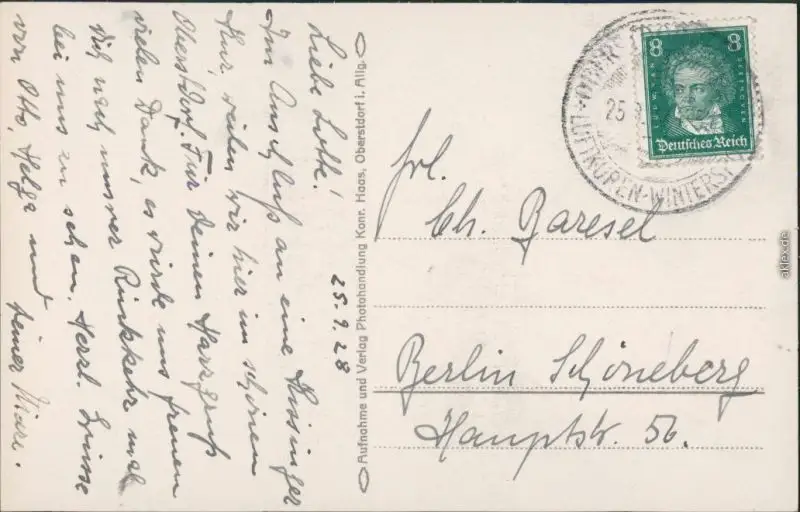 25.9.28
Liebe Lotte!
Im Anschluß an eine Kissinger
Kur, weilen wir hier im schönen
Oberstdorf. Für Deinen Harzgruß
vielen Dank, es würde uns freuen
Dich nach unsrer Rückkehr mal
bei uns zu sehen. Herzl. Grüsse
von Otto, Helga und Deiner
Aufnahme und Verlag Photohandlung Konr. Haas, Oberstdorf i. Allg.
Frl.
Ch. Baresel
Berlin Schöneberg
Hauptstr. 56.
8 8
LUDWIG VAN BEETHOVEN
Deutsches Reich
25.9
LUFTKUPEN-WINTERSP
akpool.de